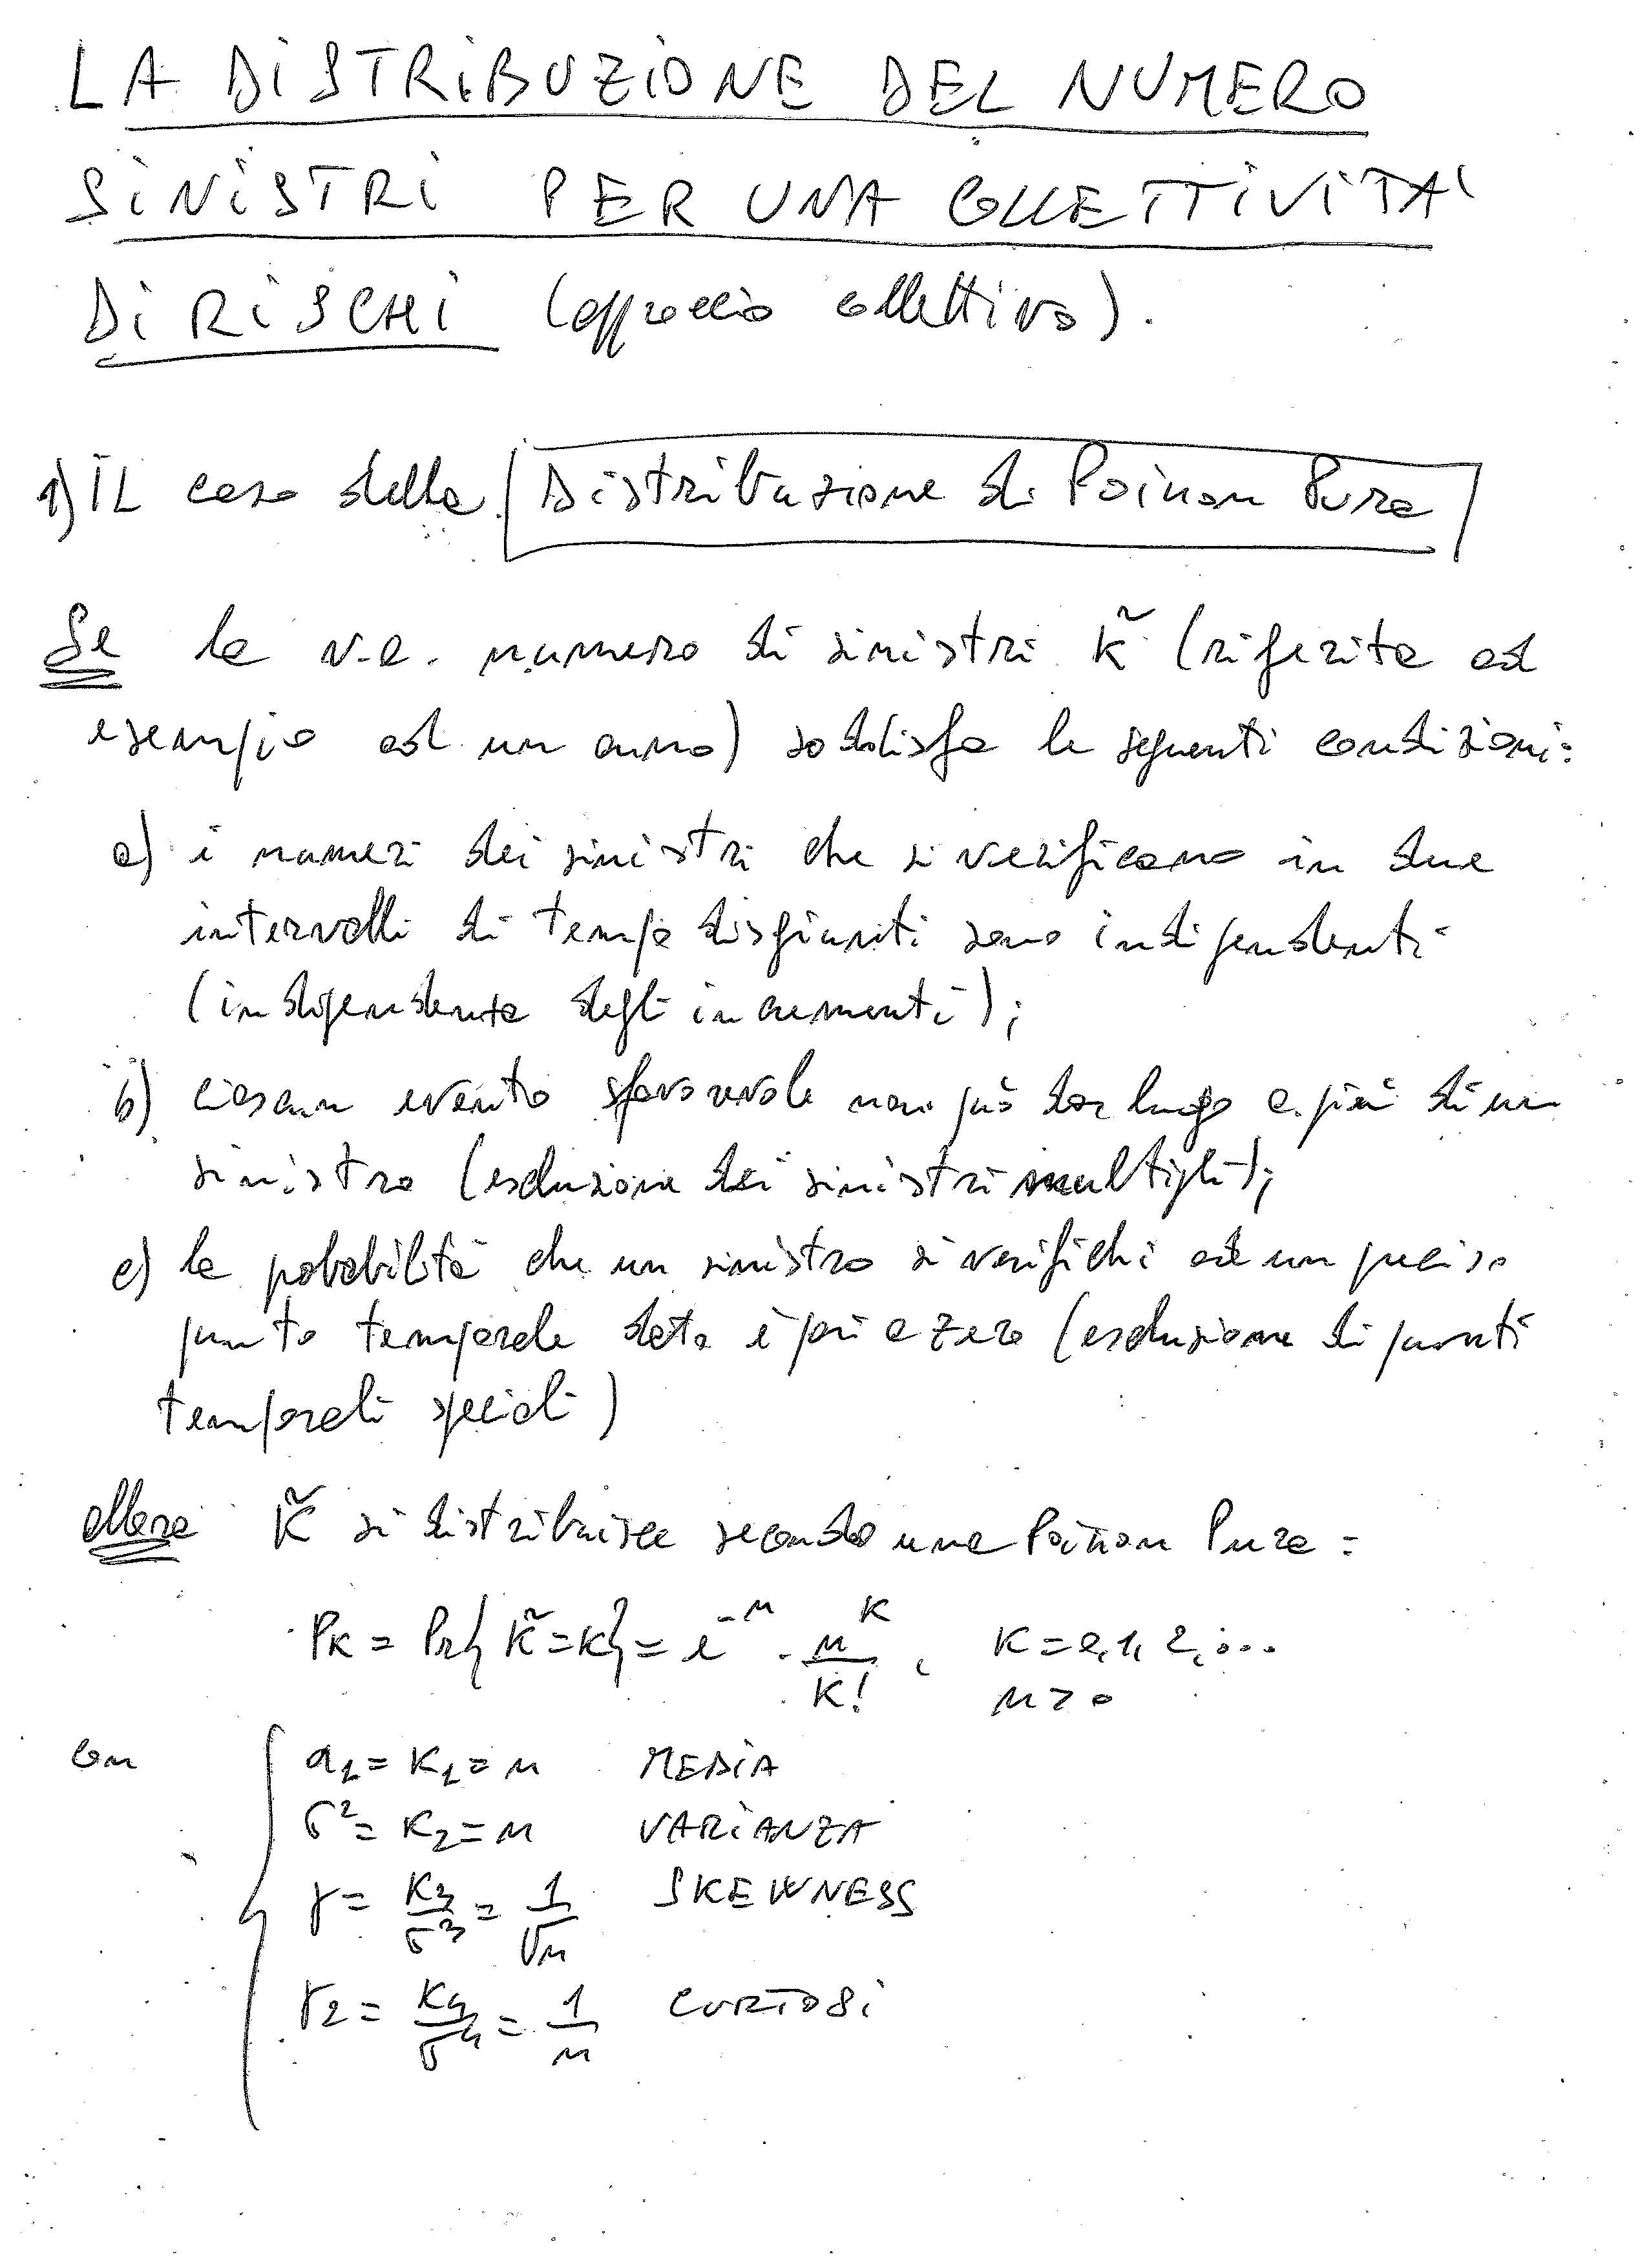 LA DISTRIBUZIONE DEL NUMERO
SINISTRI PER UNA COLLETTIVITA'
DI RISCHI (approccio collettivo).
1) IL caso della Distribuzione di Poisson Pura
Se la v.a. numero di sinistri k̃ (riferita ad
esempio ad un anno) soddisfa le seguenti condizioni:
a) i numeri dei sinistri che si verificano in due
intervalli di tempo disgiunti sono indipendenti
(indipendenza degli incrementi);
b) ciascun evento sfavorevole non può dar luogo a più di un
sinistro (esclusione dei sinistri multipli);
c) la probabilità che un sinistro si verifichi ad un preciso
punto temporale dato è pari a zero (esclusione di punti
temporali speciali)
allora k̃ si distribuisce secondo una Poisson Pura:
Pk = Pr{k̃=k} = e^-n · n^k/k! , k=0,1,2,...
n>0
con
a1 = K1 = n MEDIA
σ² = K2 = n VARIANZA
γ = K3/σ³ = 1/√n SKEWNESS
γ2 = K4/σ⁴ = 1/n CURTOSI